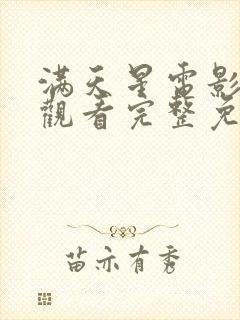 满天星電影
觀看完整免
苗亦有秀